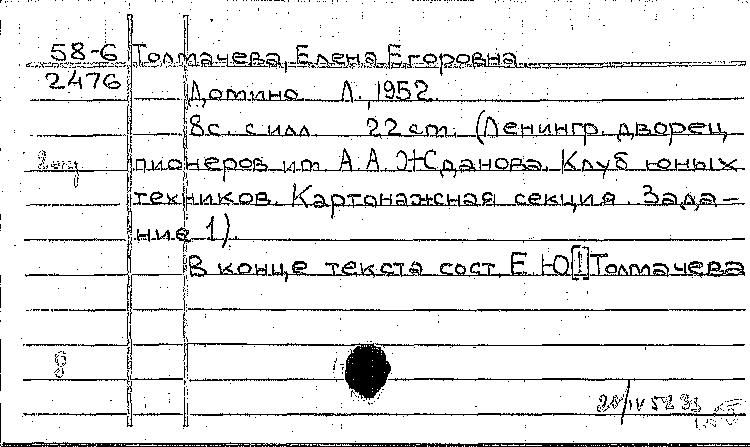 58-6 Толмачева, Елена Егоровна.
2476
Домино. Л., 1952.
8с. с илл. 22 cm. (Ленингр. дворец
2 экз пионеров им. А. А. Жданова. Клуб юных
техников. Картонажная секция. Зада-
ние 1).
В конце текста сост. Е. Ю. [!] Толмачева
8